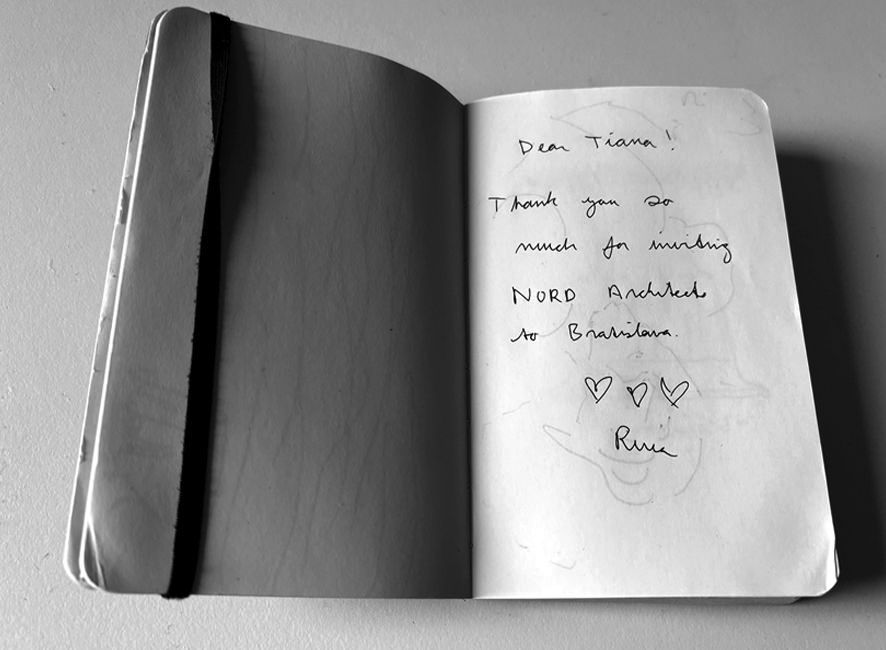 Dear Tiana!
Thank you so
much for inviting
NORD Architects
to Bratislava.